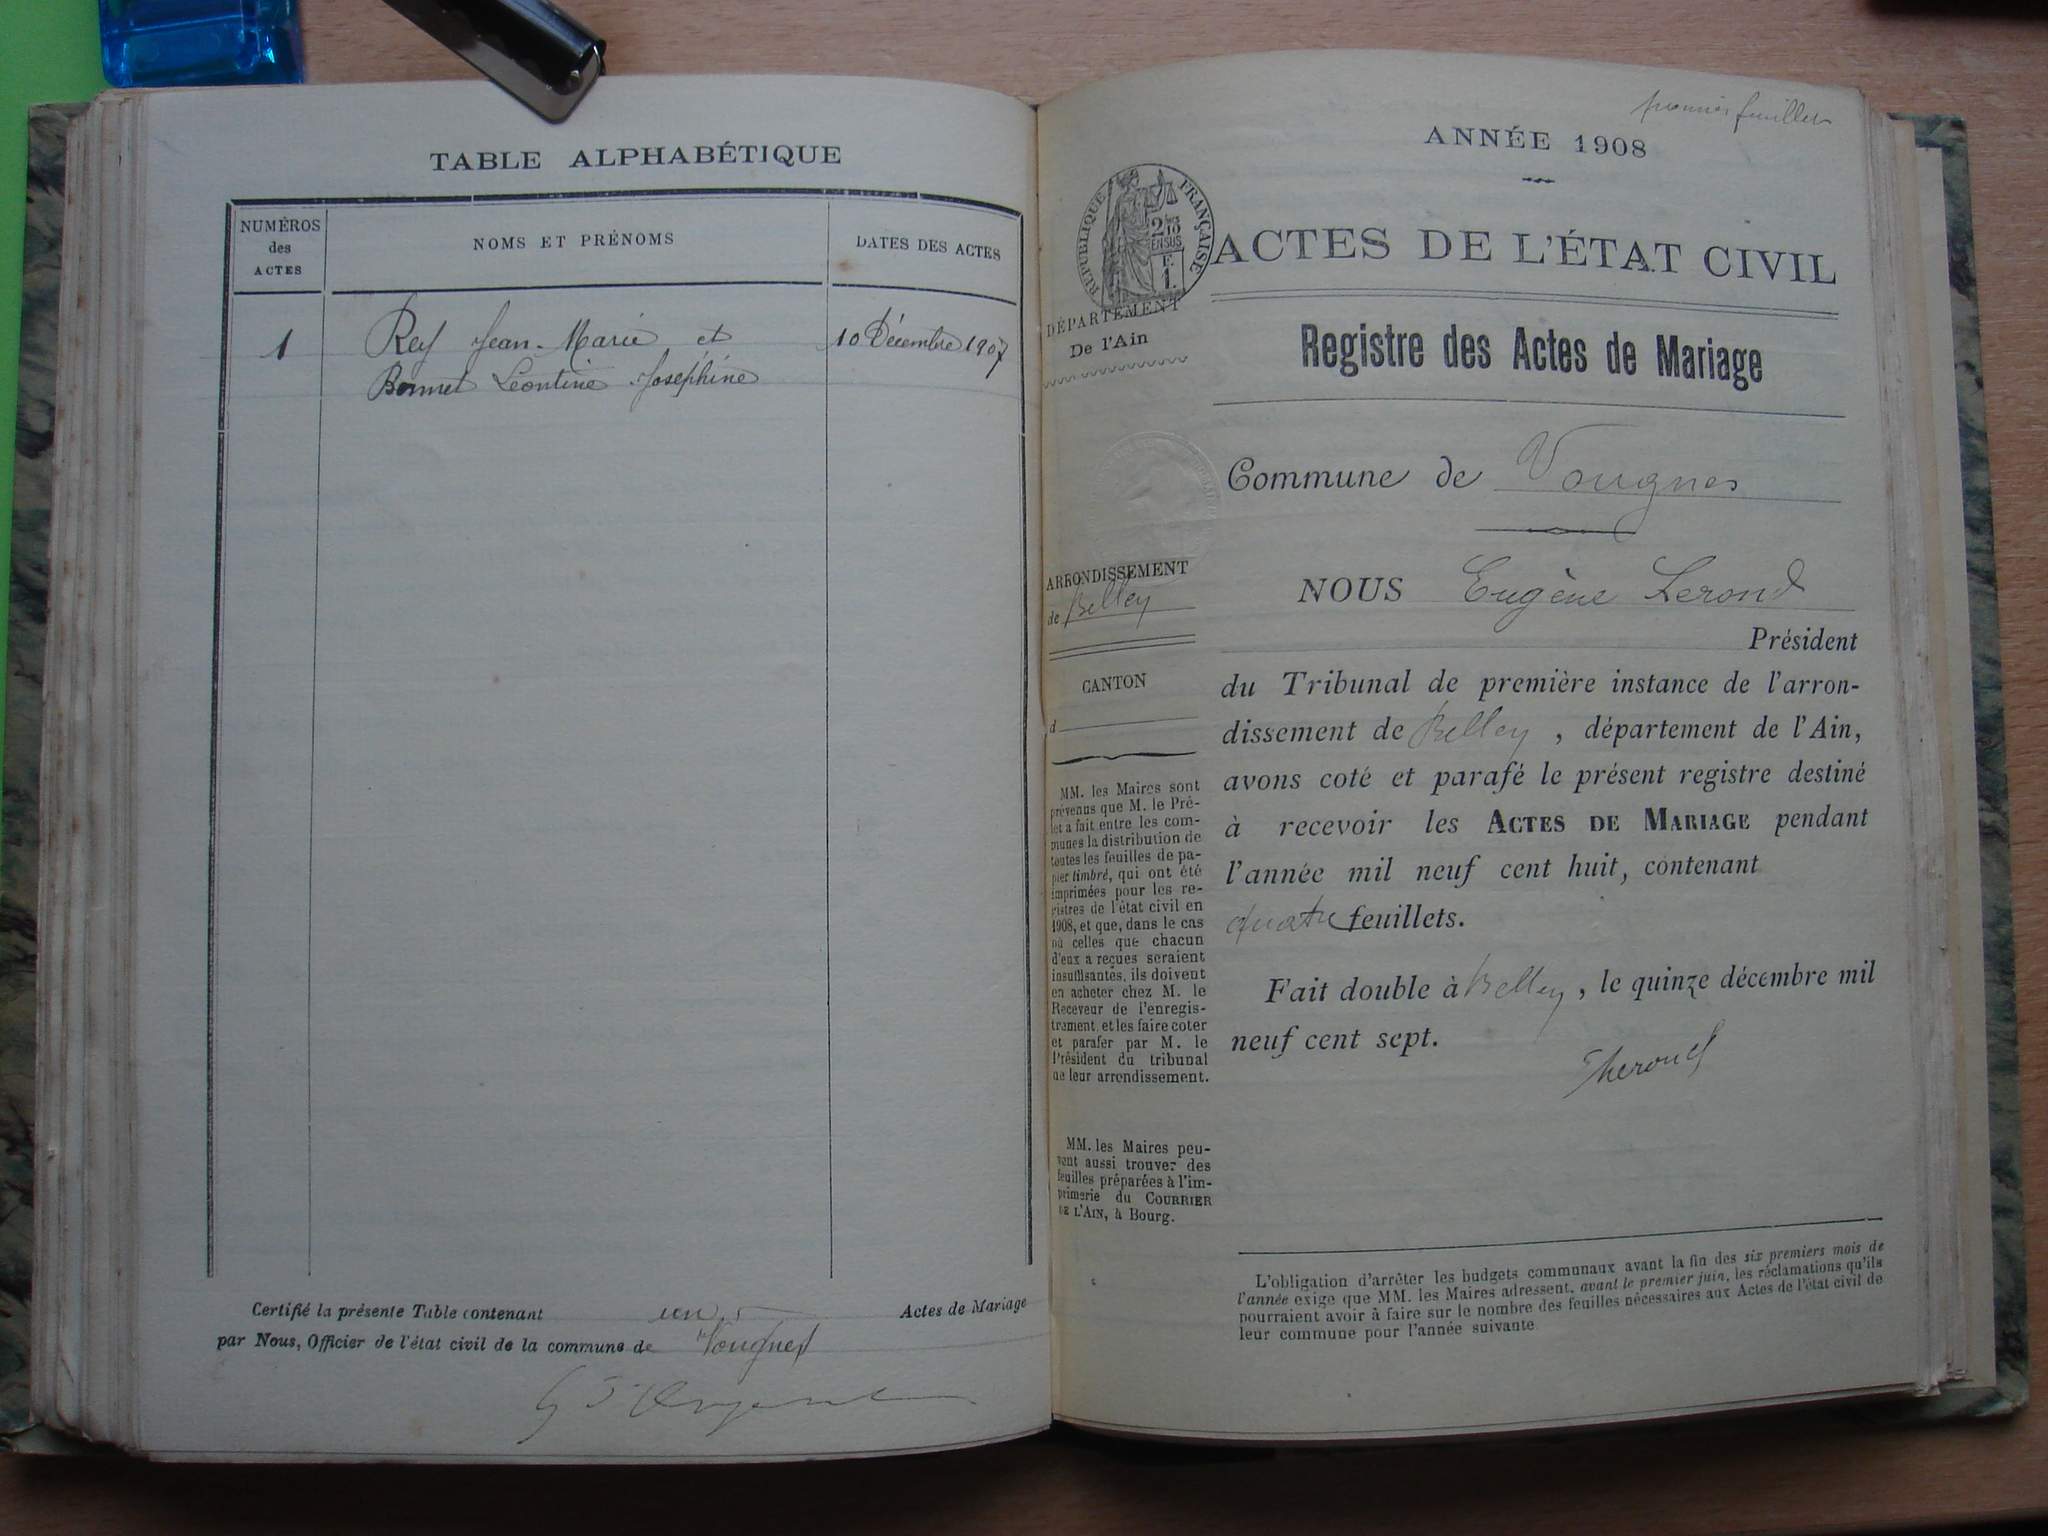 TABLE ALPHABÉTIQUE
NUMÉROS
des
ACTES
NOMS ET PRÉNOMS
DATES DES ACTES
1
Rey Jean-Marie et
10 Décembre 1907
Bonnet Léontine Joséphine
Certifié la présente Table contenant un Actes de Mariage
par Nous, Officier de l'état civil de la commune de Vougnes
premier feuillet
ANNÉE 1908
RÉPUBLIQUE FRANÇAISE
ACTES DE L'ÉTAT CIVIL
DÉPARTEMENT
De l'Ain
Registre des Actes de Mariage
Commune de Vougnes
ARRONDISSEMENT
de Belley
CANTON
d
MM. les Maires sont
prévenus que M. le Pré-
fet a fait entre les com-
munes la distribution de
toutes les feuilles de pa-
pier timbré, qui ont été
imprimées pour les re-
gistres de l'état civil en
1908, et que, dans le cas
où celles que chacun
d'eux a reçues seraient
insuffisantes, ils doivent
en acheter chez M. le
Receveur de l'enregis-
trement, et les faire coter
et parafer par M. le
Président du tribunal
de leur arrondissement.
MM. les Maires peu-
vent aussi trouver des
feuilles préparées à l'im-
primerie du COURRIER
DE L'AIN, à Bourg.
NOUS Eugène Lerond
Président
du Tribunal de première instance de l'arron-
dissement de Belley, département de l'Ain,
avons coté et parafé le présent registre destiné
à recevoir les ACTES DE MARIAGE pendant
l'année mil neuf cent huit, contenant
quatre feuillets.
Fait double à Belley, le quinze décembre mil
neuf cent sept.
L'obligation d'arrêter les budgets communaux avant la fin des six premiers mois de
l'année exige que MM. les Maires adressent, avant le premier juin, les réclamations qu'ils
pourraient avoir à faire sur le nombre des feuilles nécessaires aux Actes de l'état civil de
leur commune pour l'année suivante.